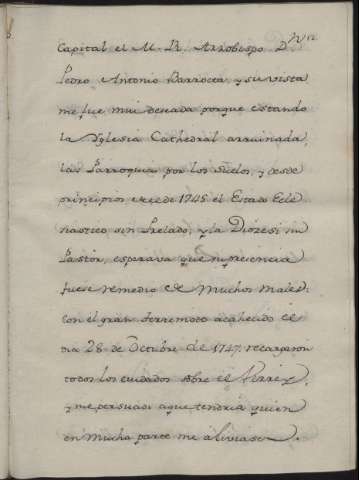 Capital el M. R. Arzobispo D.
Pedro Antonio Barroeta, y su vista
me fue mui deseada porque estando
la Yglesia Cathedral arruinada,
las Parroquias por los suelos, y desde
principios de 1745 el Estado Ecle
siastico sin Prelado, y la Diozesi sin
Pastor, esperava que su presencia
fuese remedio de muchos males:
con el gran terremoto acahecido el
dia 28 de Octubre de 1747. recargaron
todos los cuidados sobre el Virrey,
y me persuadi a que tendria quien
en mucha parte me aliviase.